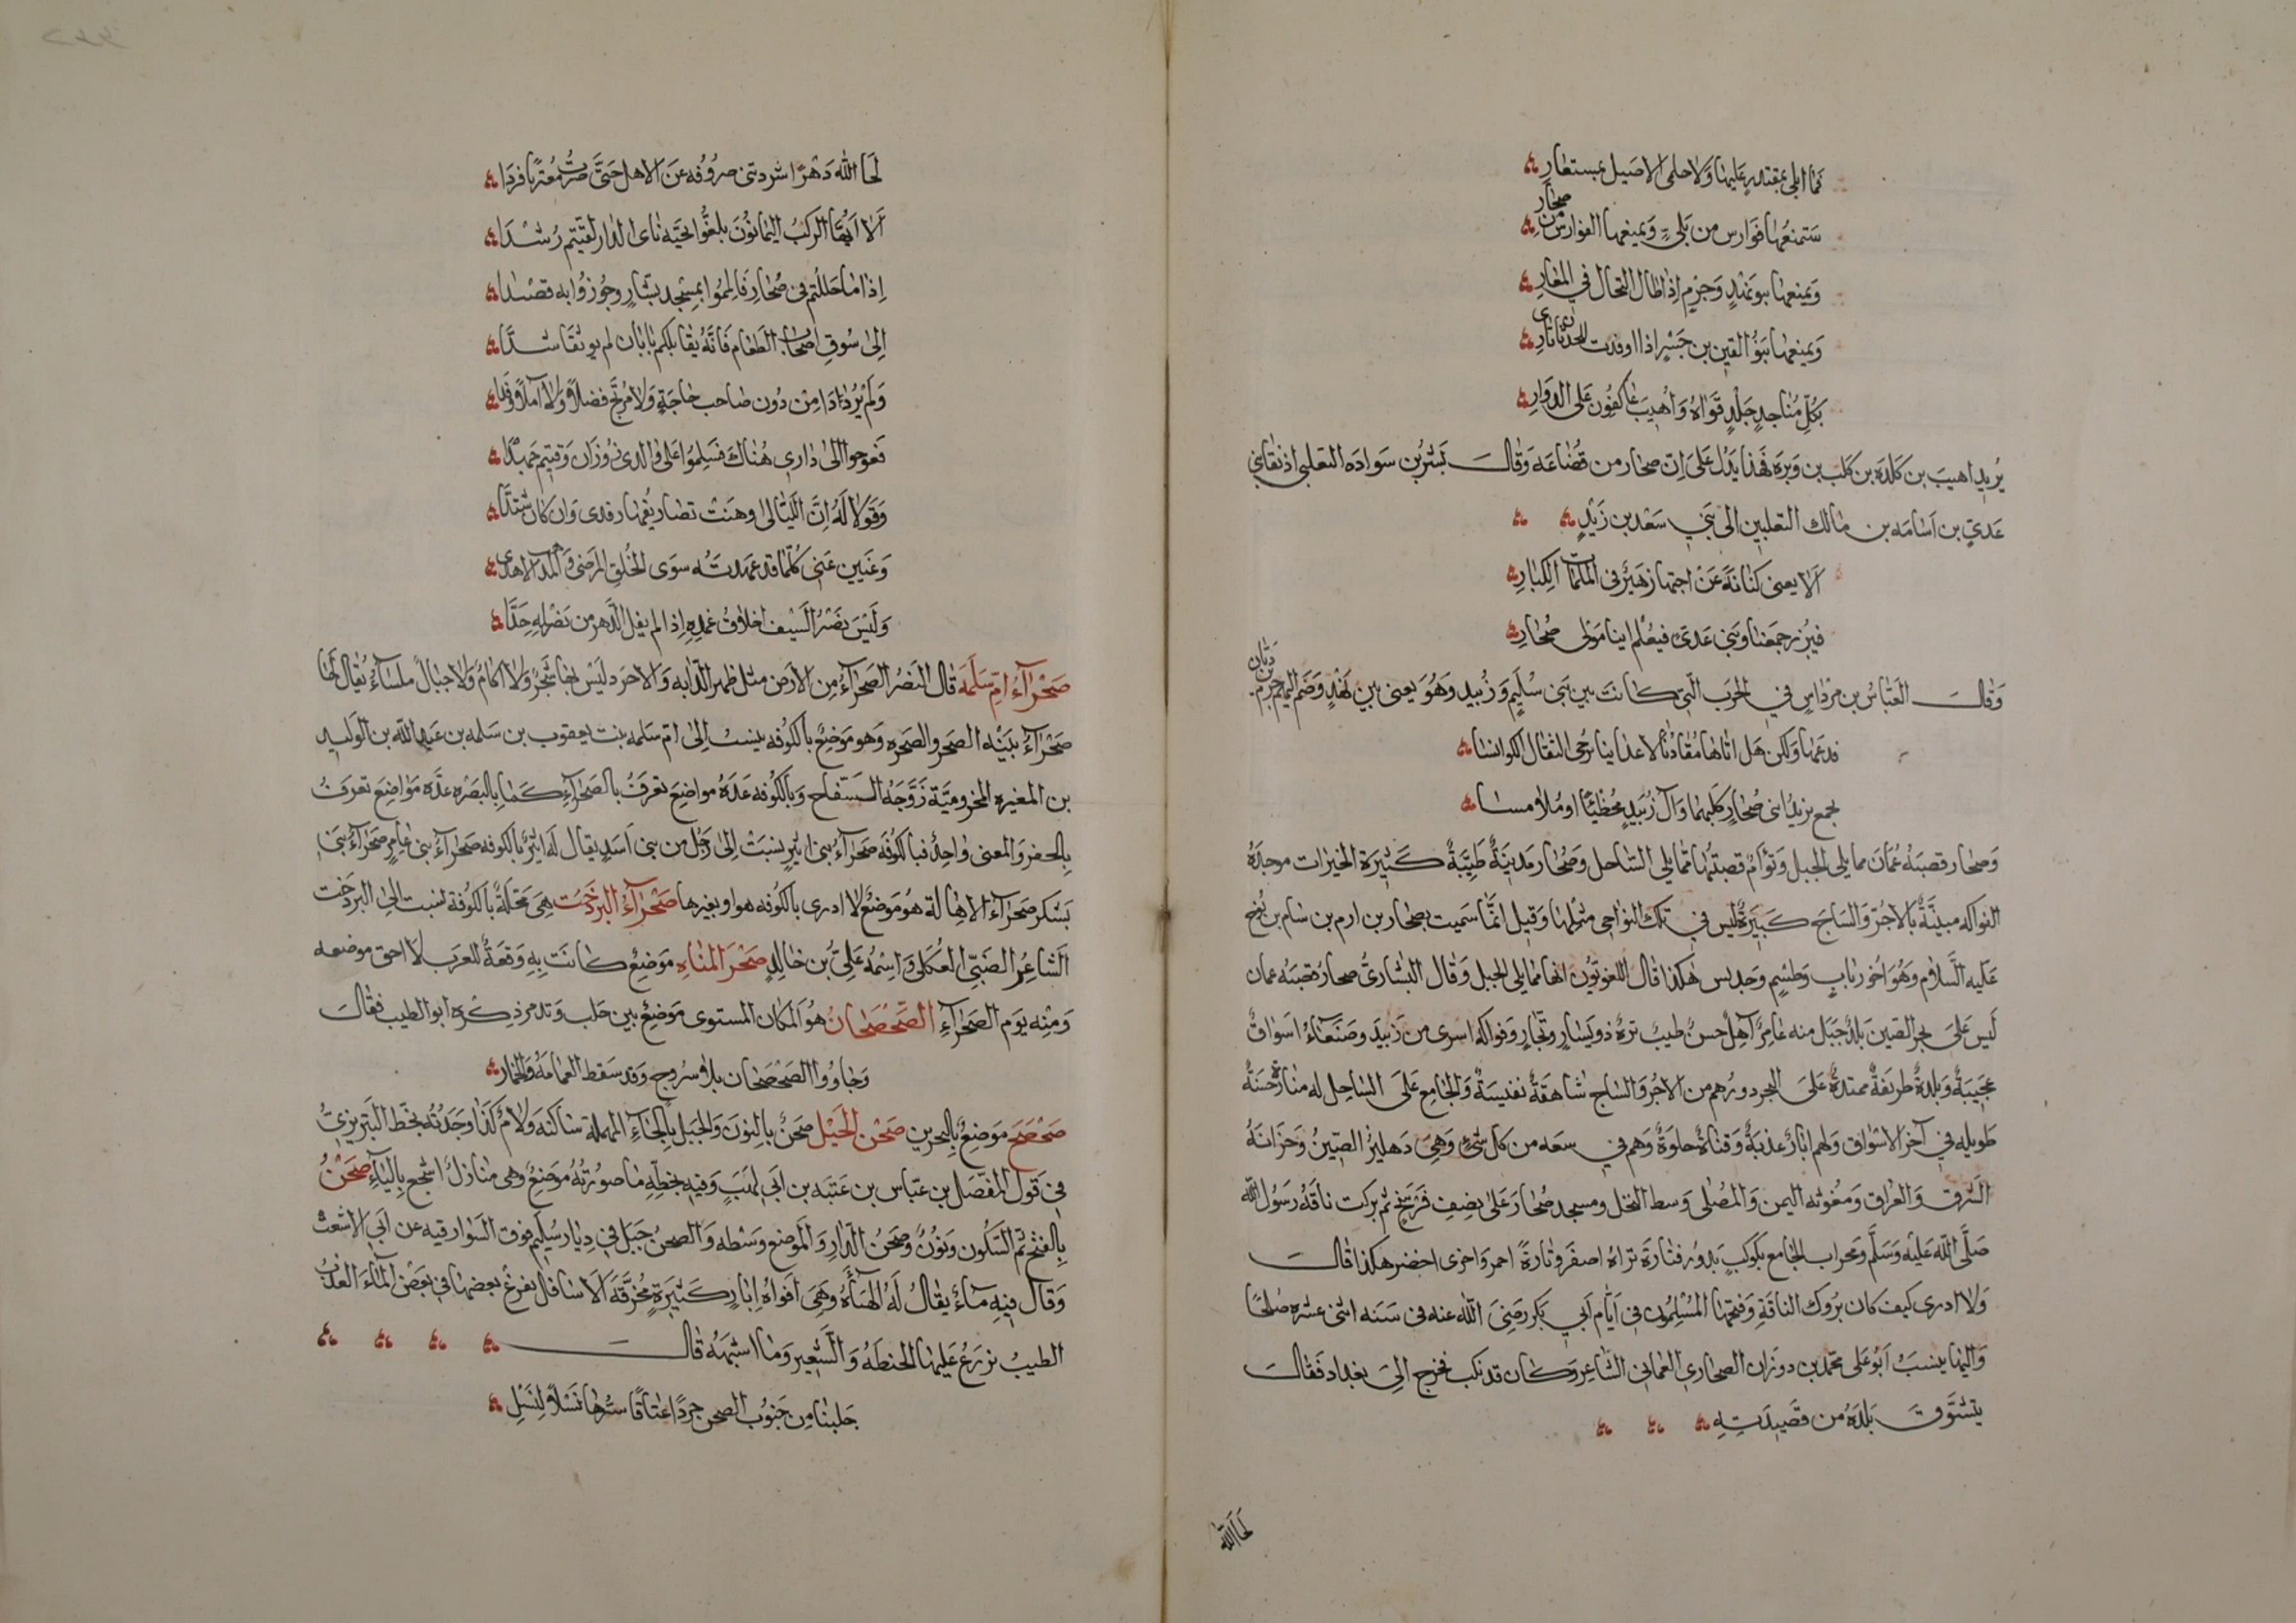 فما ابلى بمقتدر عليها ولا حلمى الاصيل بمستعار
ستمنعها فوارس من بلى ويمنعها الفوارس من صحار
ويمنعها بنو نهد وجرم اذا طال التجال في المغار
ويمنعها بنو القين بن جسر اذا اوقدت للحدثان نارى
بكل مناجد جلد قواه واهيب عاكفون على الدوار
يريد اهيب بن كلده بن كلب بن وبره فهذا يدل على ان صحار من قضاعه وقال بشر بن سواده التغلبى اذ نعا بنى
عدي بن اسامه بن مالك التغلبيين الى بني سعد بن زيد
الا يعنى كنانة عن اخيها زهير فى الملمات الكبار
فيبرز جمعنا وبنى عدى فيعلم اينا مولى صحار
وقال العباس بن مرداس في الحرب التي كانت بين بنى سليم وزبيد وهو يعنى بين نهد وضم اليهم جرم بن ربان
فدعها ولكن هل اتاها مقادنا لاعدائنا نزجى الثقال الكوانسا
بجمع نريد ابنى صحار كليهما وآل زبيد مخطئا او ملامسا
وصحار قصبة عمان مما يلى الجبل وتوام قصبتها مما يلي الساحل وصحار مدينة طيبة كثيرة الخيرات موجدة
الفواكه مبنية بالاجر والساج كبيرة ليس في تلك النواحي مثلها وقيل انما سميت بصحار بن ارم بن سام بن نوح
عليه السلام وهو اخو رباب وطسم وجديس هكذا قال اللغويون انها مما يلي الجبل وقال البشاري صحار قصبه عمان
ليس على بحر الصين بلد جبل منه عامر آهل حسن طيب نزه ذو يسار وتجار وفواكه اسرى من زبيد وصنعاء اسواق
عجيبة وبلدة طريفة ممتدة على البحر دورهم من الاجر والساج شاهقة نفيسة والجامع على الساحل له منارة حسنة
طويله في آخر الاسواق ولهم ابار عذبة وقناة حلوة وهم في سعه من كل شئ وهي دهليز الصين وخزانة
الشرق والعراق ومغوثه اليمن والمصلى وسط النخل ومسجد صحار على نصف فرسخ ثم بركت ناقة رسول الله
صلى الله عليه وسلم ومحراب الجامع بكوكب يدور فتارة تراه اصفر وتارة احمر واخرى اخضر هكذا قال
ولا ادرى كيف كان بروك الناقة وفتحها المسلمون فى ايام ابي بكر رضى الله عنه فى سنه اثنى عشره صلحا
واليها ينسب ابو على محمد بن دوزان الصحاري العماني الشاعر وكان قد نكب فخرج الى بغداد فقال
يتشوق بلده من قصيدته
لحا الله
لحا الله دهرا شردتنى صروفه عن الاهل حتى صرت مغتربا فردا
الا ايها الركب اليمانون بلغوا تحيه نائ الدار لقيتم رشدا
اذا ما حللتم فى صحار فالمموا بمسجد بشار وجوزوا به قصدا
الى سوق اصحاب الطعام فانه يقابلكم بابان لم يوثقا شدا
ولم يرددا من دون صاحب حاجة ولا مرتج فضلا ولا آمل رفدا
فعوجوا الى دارى هناك فسلموا على والدى زوزان وقيتم جهدا
وقولا له ان الليالى اوهنت تصاريفها رفدى وان كان مشتدا
وغيبن عنى كلما قد عهدته سوى الخلق المرضى والمذهب الاهدى
وليس يضر السيف اخلاق غمده اذا لم يفل الدهر من نصله حدا
صحراء ام سلمة قال النضر الصحراء من الارض مثل ظهر الدابه والاجرد ليس بها شجر ولا اكام ولا جبال ملساء يقال لها
صحراء بينه الصحر والصحره وهو موضع بالكوفه ينسب الى ام سلمه بنت يعقوب بن سلمه بن عبد الله بن الوليد
بن المغيره المخزوميه زوجة السفاح وبالكوفه عدة مواضع تعرف بالصحراء كما بالبصره عده مواضع تعرف
بالحفر والمعنى واحد فبالكوفه صحراء بنى اثير نسبت الى رجل من بنى اسد يقال له اثير بالكوفه صحراء بنى عامر صحراء بنى
يشكر صحراء الاهالة هو موضع لا ادرى بالكوفه هو او بغيرها صحراء البردخت هي محلة بالكوفة نسبت الى البردخت
الشاعر الضبي العكلى واسمه علي بن خالد صحرا المناه موضع كانت به وقعة للعرب لا احق موضعه
ومنه يوم الصحراء الصحصحان هو المكان المستوى موضع بين حلب وتدمر ذكره ابو الطيب فقال
وجاوزوا الصحصحان بلا سروج وقد سقط العمامة والخمار
صحصح موضع بالبحرين صحن الحيل صحن بالنون والحبل بالحاء المهملة ساكنه ولام كذا وجدته بخط التبريزي
فى قول المفضل بن عباس بن عتبه بن ابى لهب وفيه بخطه ما صورته موضع وهى منازل اشجع بالياء صحن
بالفتح ثم السكون ونون وصحن الدار والموضع وسطه والصحن جبل فى ديار سليم فوق السوارقيه عن ابي الاشعث
وقال فيه ماء يقال له الهباه وهى افواه ابار كثيرة مخرقة الاسافل يفرغ بعضها في بعض الماء العذب
الطيب نزرع عليها الحنطه والشعير وما اشبهه قال
جلبنا من جنوب الصحن جردا عتاقا سرها نسلا لنسل